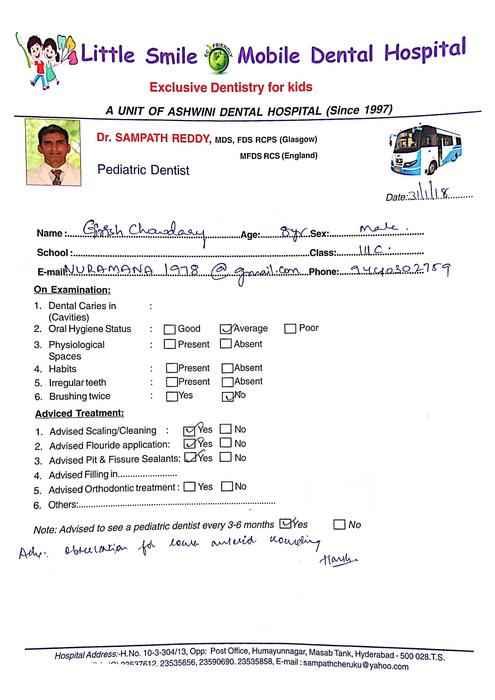 Little Smile Mobile Dental Hospital
ECO FRIENDLY
Exclusive Dentistry for kids
A UNIT OF ASHWINI DENTAL HOSPITAL (Since 1997)
Dr. SAMPATH REDDY, MDS, FDS RCPS (Glasgow)
MFDS RCS (England)
Pediatric Dentist
Date: 31/1/18
Name: Girish Chaudary Age: 8yr Sex: Male.
School: Class: III C.
E-mail NURAMANA 1978 @ gmail.com Phone: 9440302759
On Examination:
1. Dental Caries in :
(Cavities)
2. Oral Hygiene Status : Good Average Poor
3. Physiological : Present Absent
Spaces
4. Habits : Present Absent
5. Irregular teeth : Present Absent
6. Brushing twice : Yes No
Adviced Treatment:
1. Advised Scaling/Cleaning : Yes No
2. Advised Flouride application: Yes No
3. Advised Pit & Fissure Sealants: Yes No
4. Advised Filling in
5. Advised Orthodontic treatment : Yes No
6. Others:
Note: Advised to see a pediatric dentist every 3-6 months Yes No
Adv: observation for lower anterior crowding
Hospital Address:-H.No. 10-3-304/13, Opp: Post Office, Humayunnagar, Masab Tank, Hyderabad - 500 028.T.S.
23537612, 23535656, 23590690. 23535858, E-mail : sampathcheruku@yahoo.com